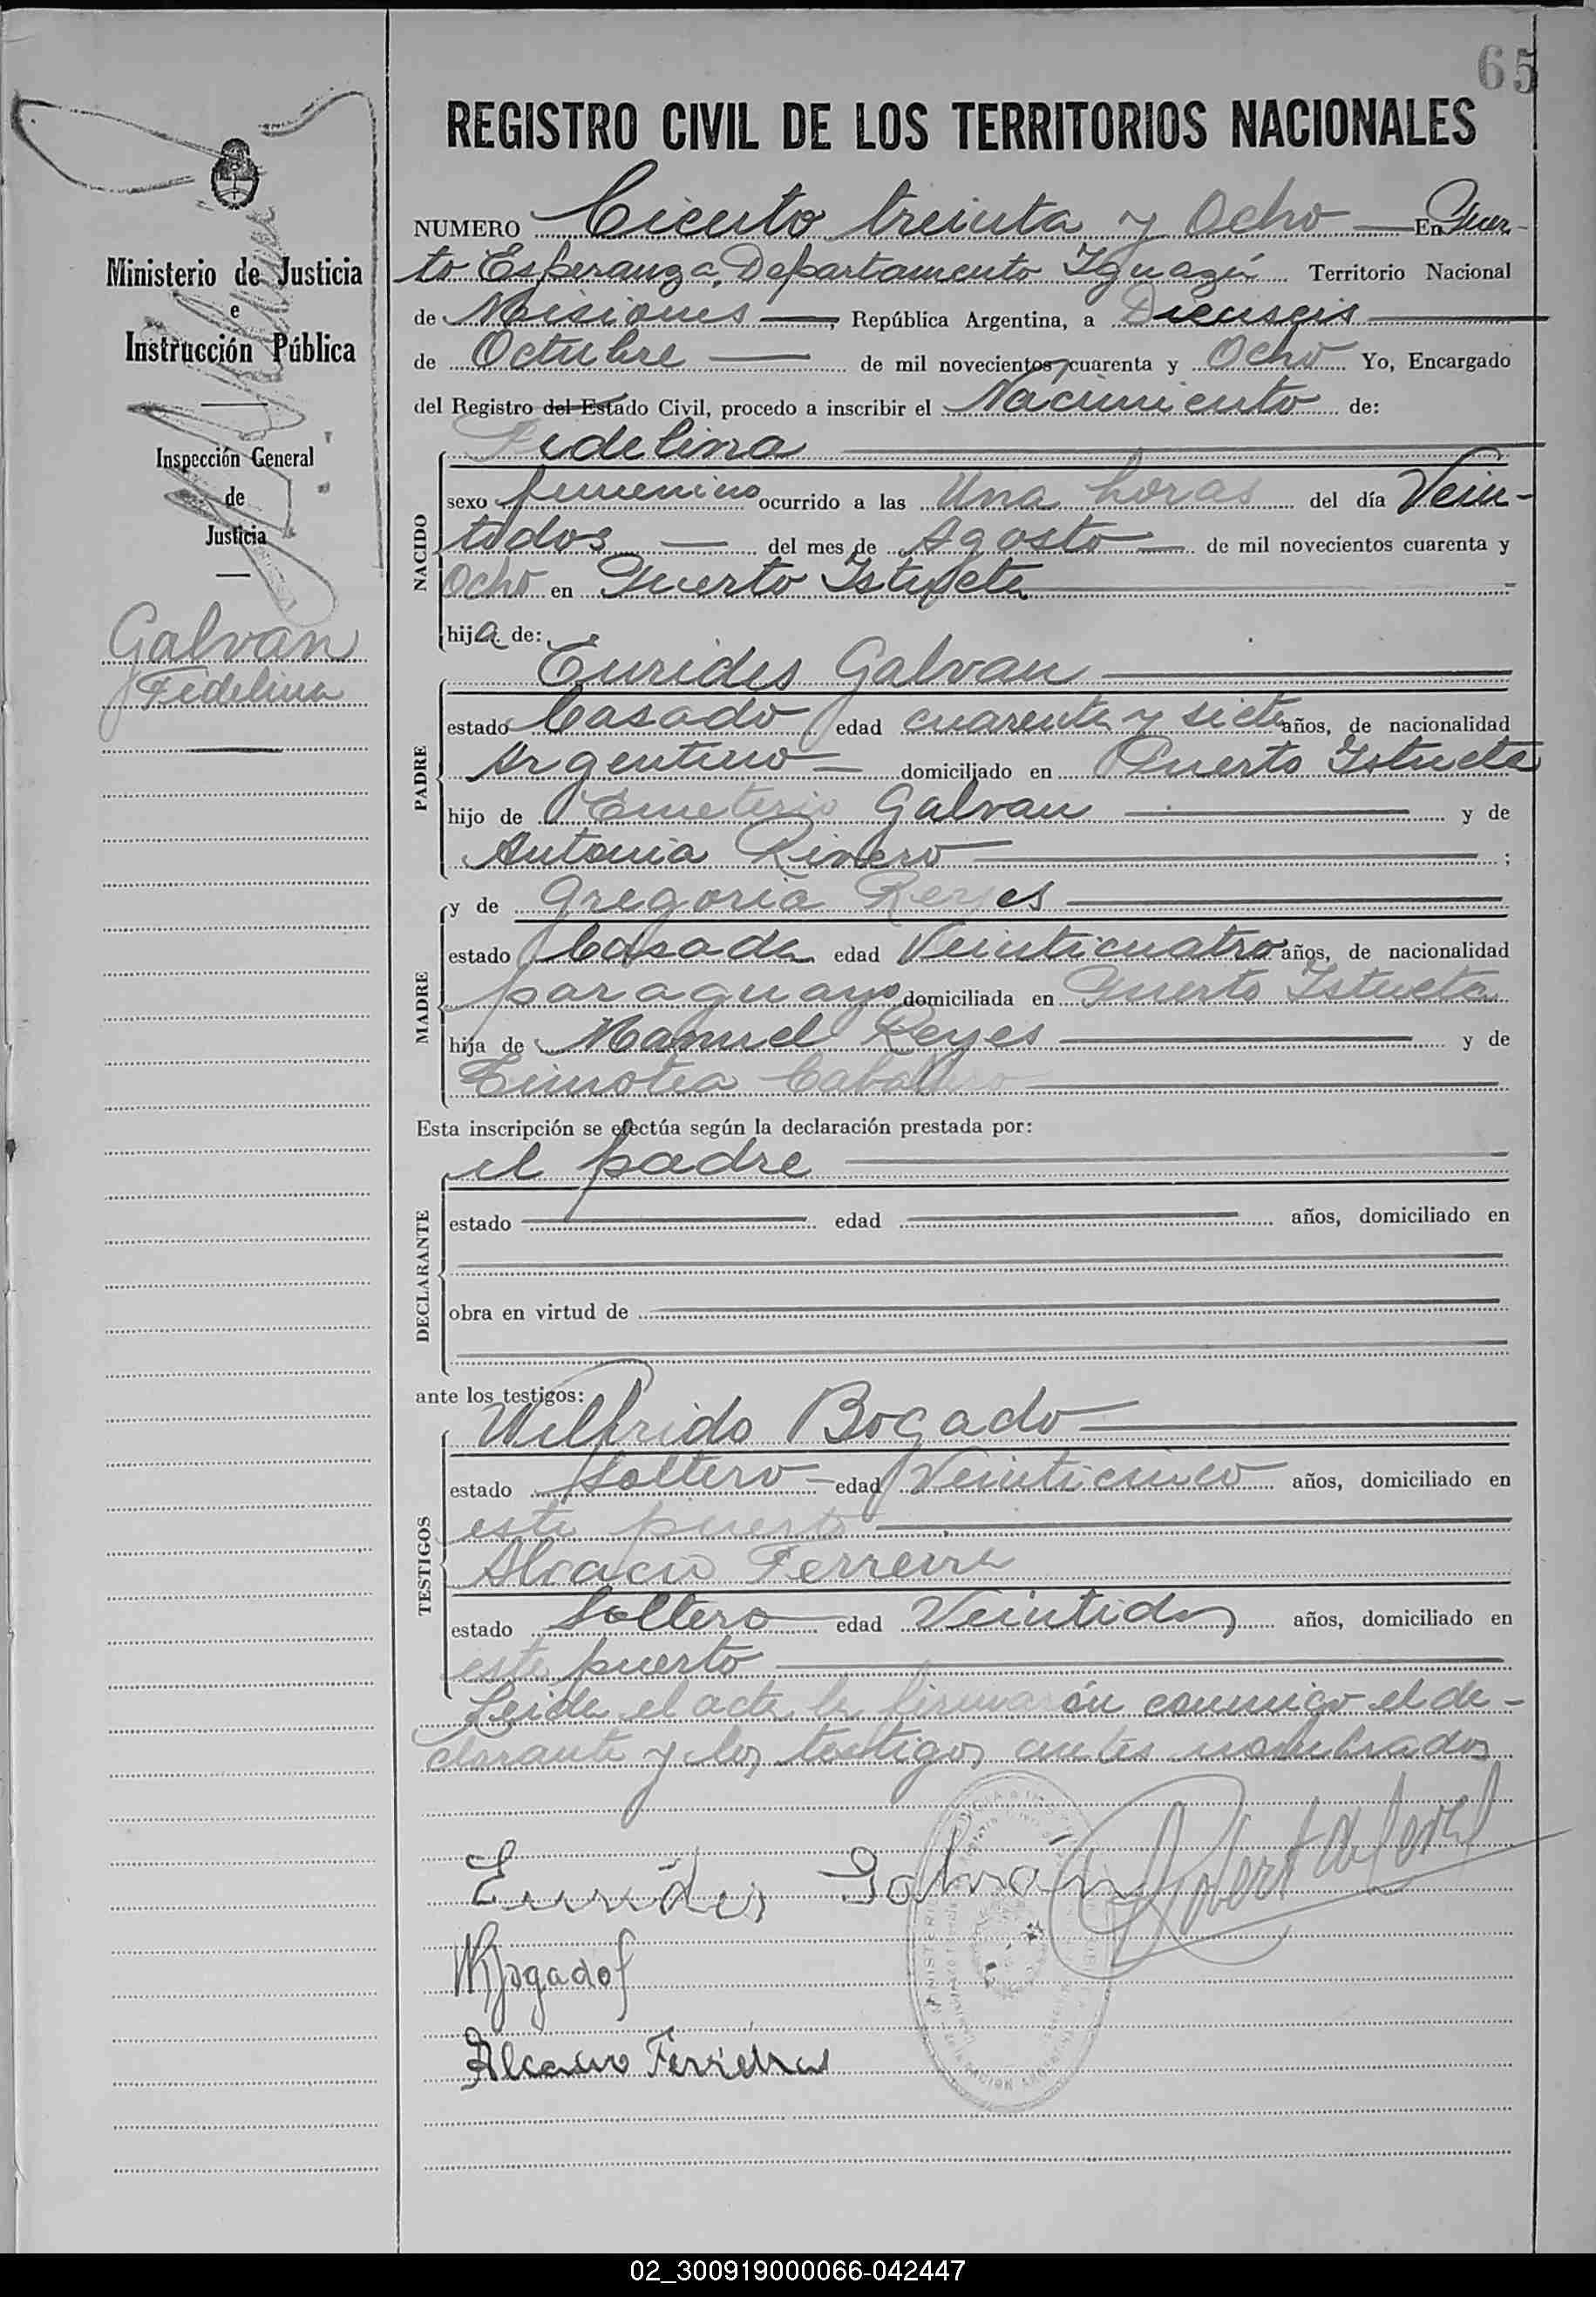 65
REGISTRO CIVIL DE LOS TERRITORIOS NACIONALES
Ministerio de Justicia
e
Instrucción Pública
Inspección General
de
Justicia
Galvan
Fidelina
NUMERO Ciento treinta y Ocho En Puer-
to Esperanza, Departamento Iguazú Territorio Nacional
de Misiones, República Argentina, a Dieciseis
de Octubre de mil novecientos cuarenta y Ocho Yo, Encargado
del Registro del Estado Civil, procedo a inscribir el Nacimiento de:
Fidelina
NACIDO
sexo femenino ocurrido a las Una horas del día Vein-
tidos del mes de Agosto de mil novecientos cuarenta y
Ocho en Puerto Istueta
hija de:
Eurides Galvan
PADRE
estado Casado edad cuarenta y siete años, de nacionalidad
Argentino domiciliado en Puerto Istueta
hijo de Emeterio Galvan y de
Antonia Rivero ;
MADRE
y de Gregoria Reyes
estado Casada edad Veinticuatro años, de nacionalidad
paraguaya domiciliada en Puerto Istueta
hija de Manuel Reyes y de
Timotea Caballero
Esta inscripción se efectúa según la declaración prestada por:
el padre
DECLARANTE
estado edad años, domiciliado en
obra en virtud de
ante los testigos:
Wilfrido Bogado
TESTIGOS
estado Soltero edad Veinticinco años, domiciliado en
este puerto
Ferreira
estado Soltero edad Veintidos años, domiciliado en
este puerto
Leida el acta la firmarón conmigo el de-
clarante y los testigos antes nombrados
Eurides Galván
WBogado
Ferreira
02_300919000066-042447